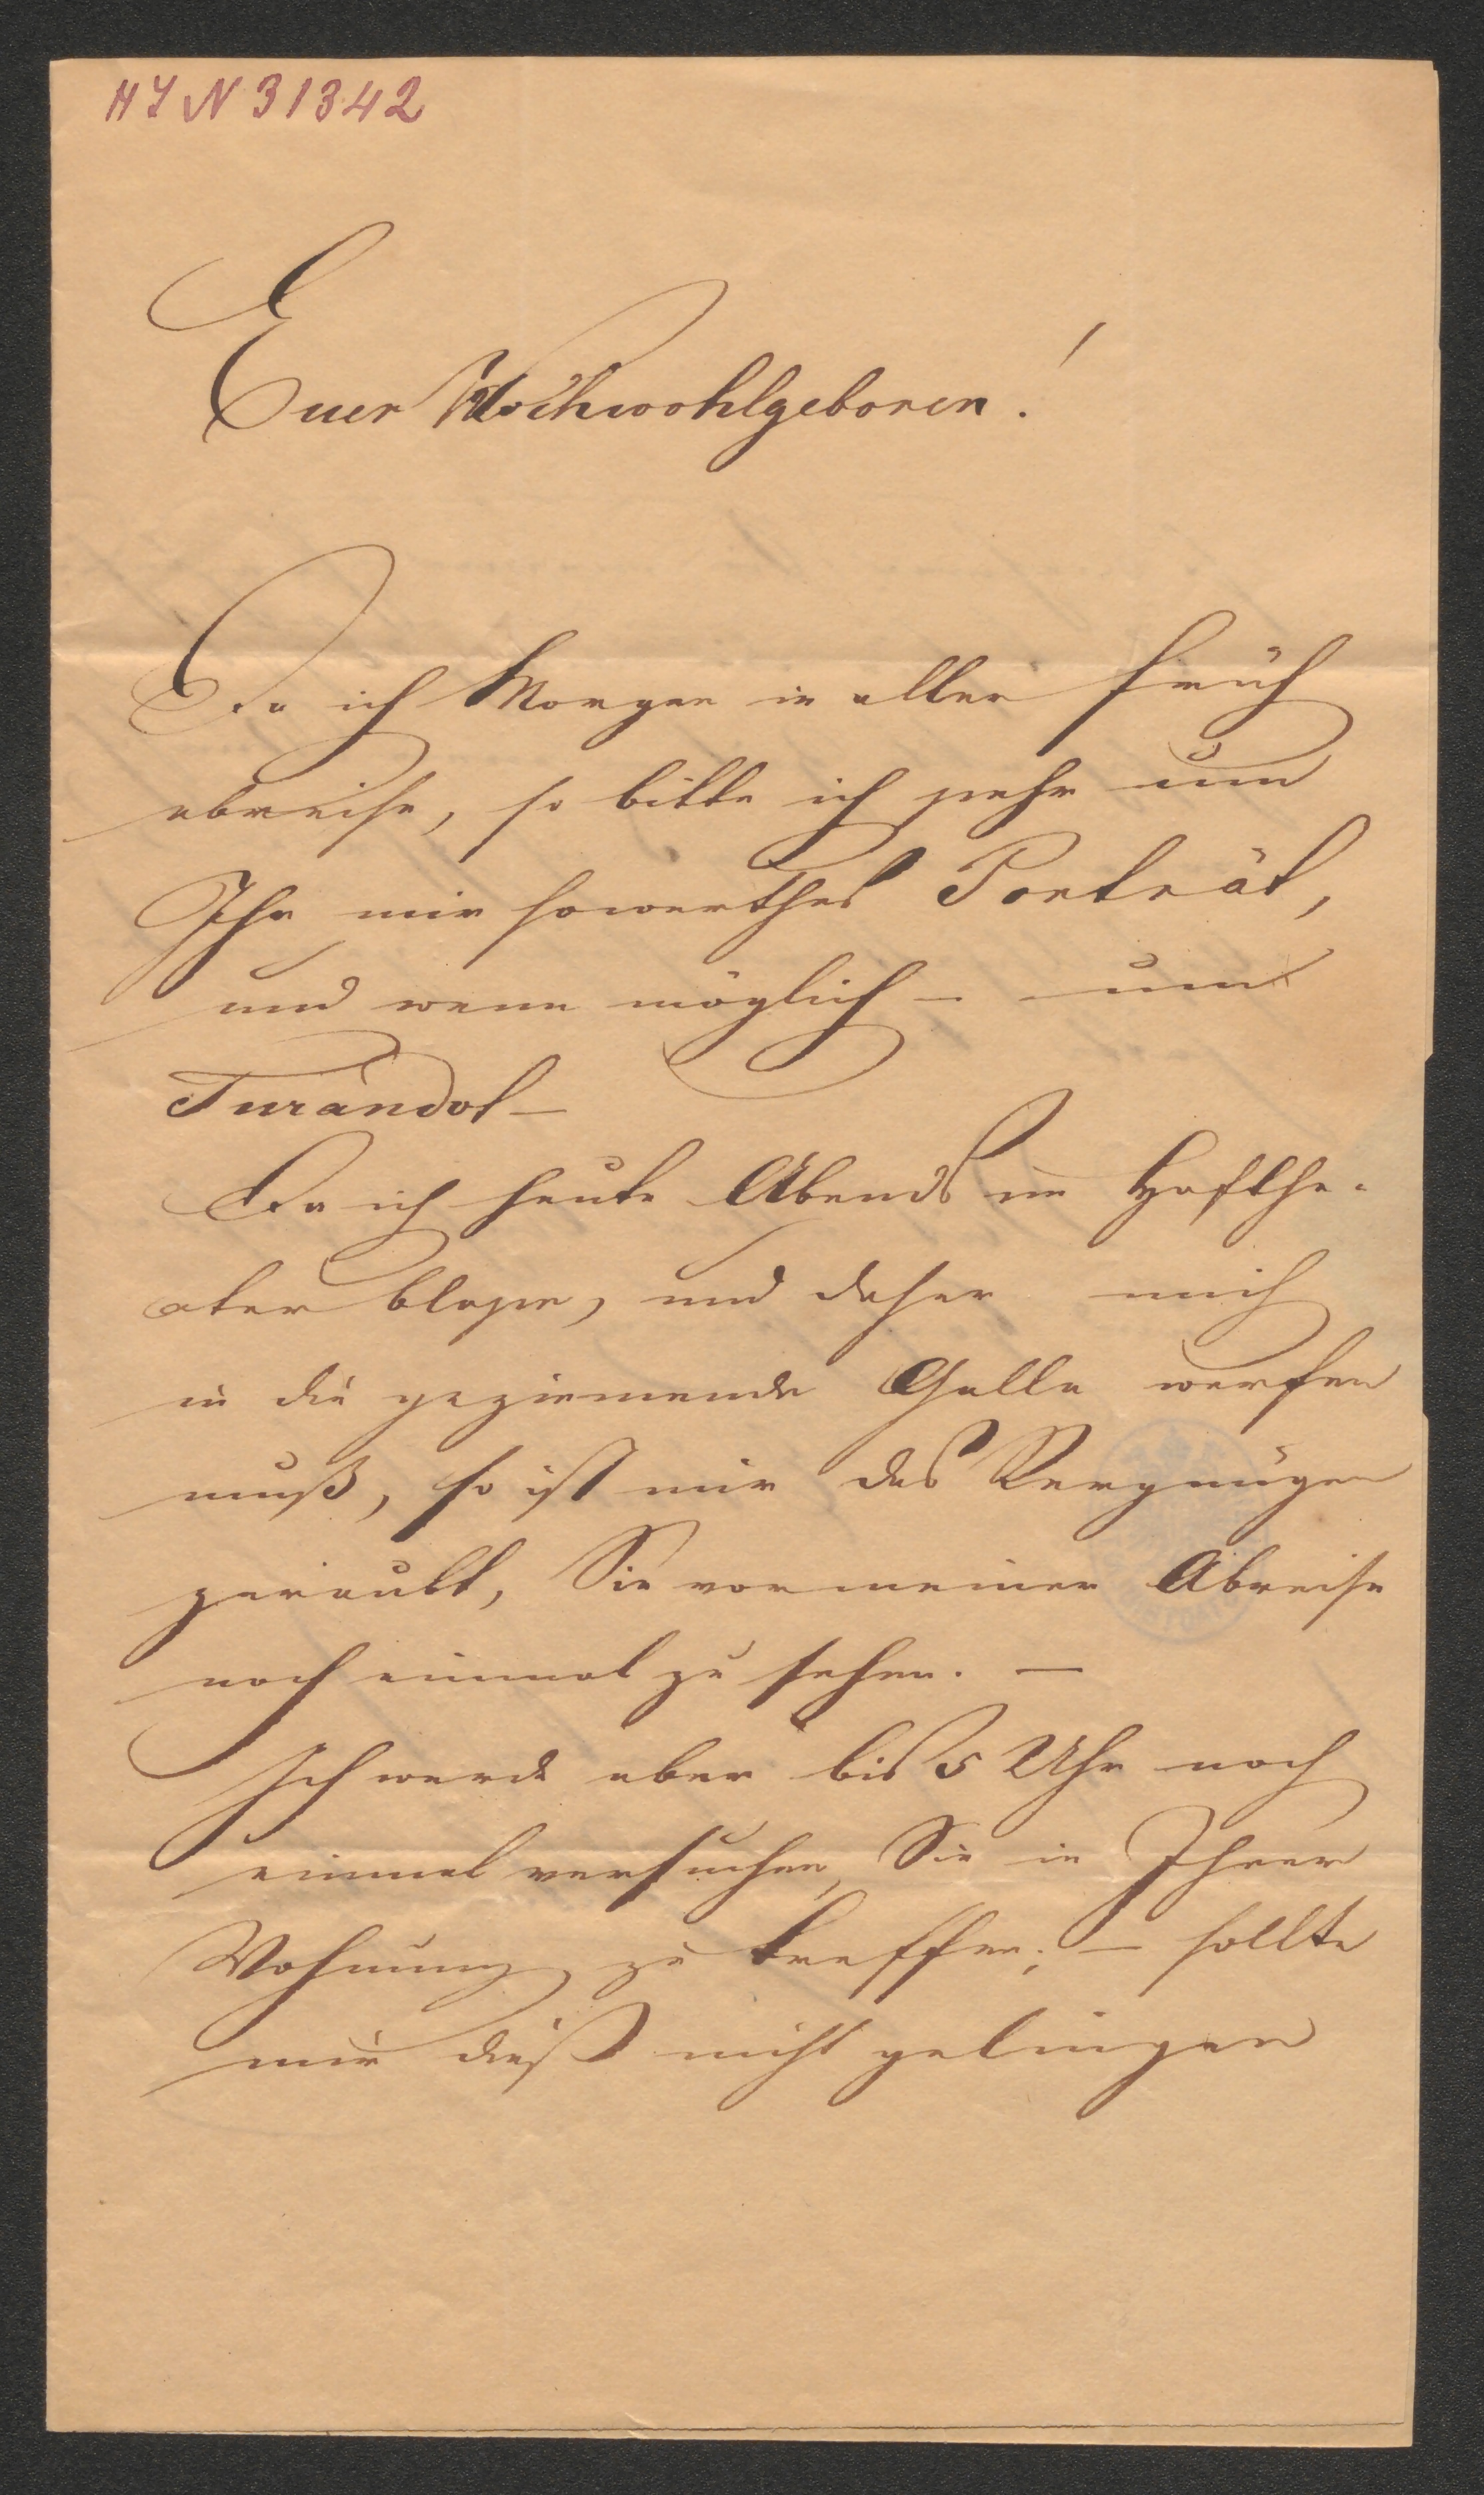 HIN 31342
Euer Hochwohlgeboren!
Da ich Morgen in aller Früh
abreise, so bitte ich sehr um
Ihr mir so werthes Porträt,
und wenn möglich – um
Turandot –
Da ich heute Abends im Hofthe-
ater blase, und daher mich
in die geziemende Galla werfen
muß, so ist mir das Vergnügen
geraubt, Sie vor meiner Abreise
noch einmal zu sehen. –
Ich werde aber bis 5 Uhr noch
einmal versuchen, Sie in Ihrer
Wohnung zu treffen; – sollte
mir dieß nicht gelingen